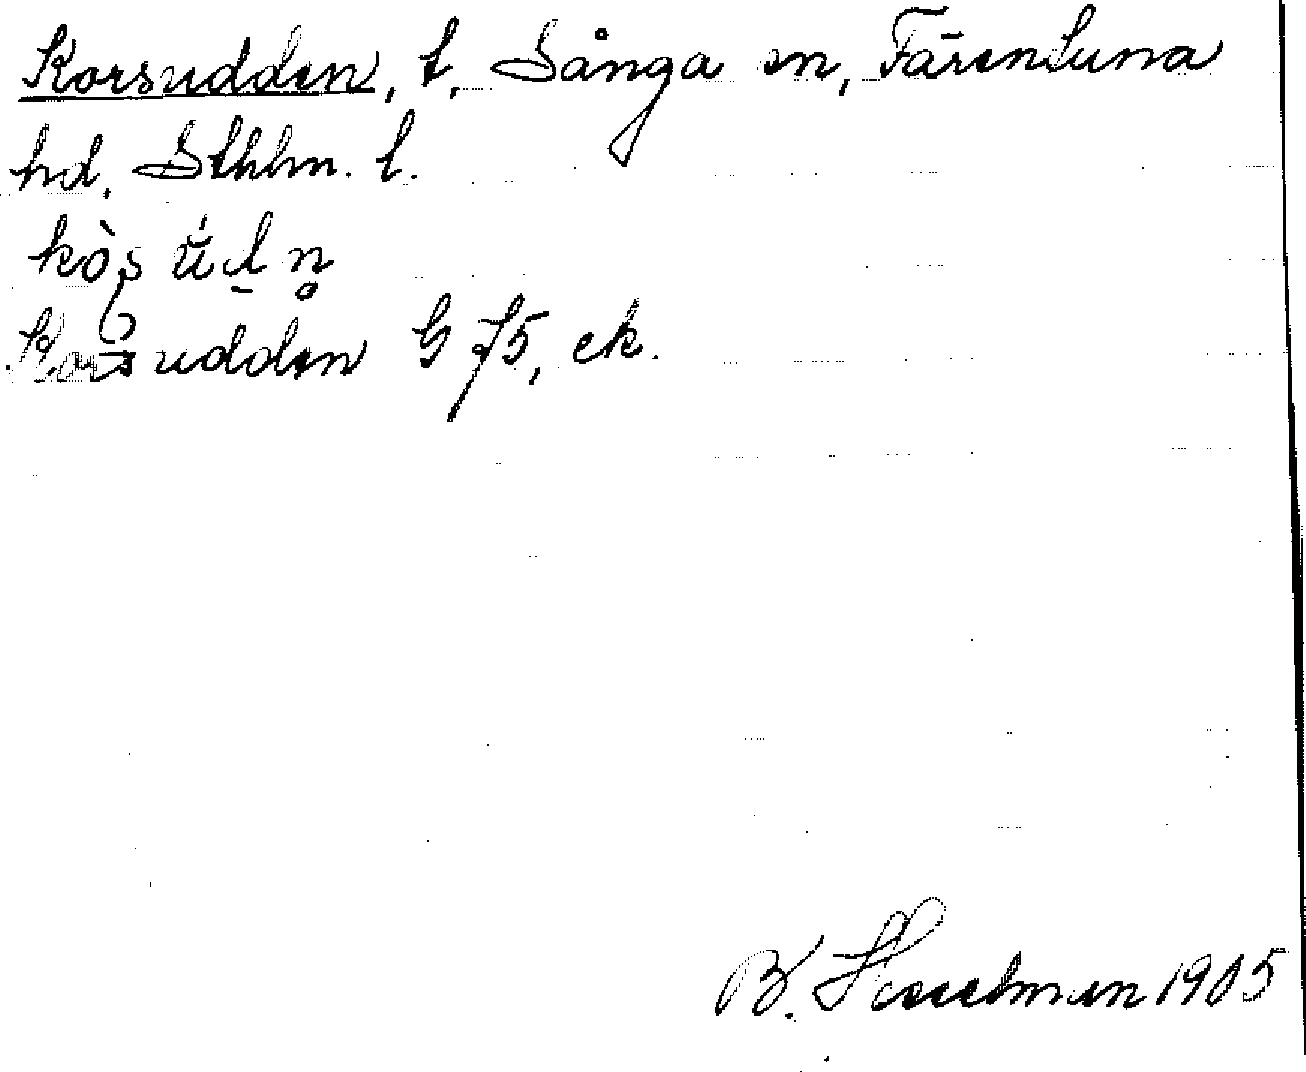 Korsudden, t, Sånga sn, Färentuna
hd. Sthlm. l.
Korsudden G 75, ek.
B. Hesselman 1905